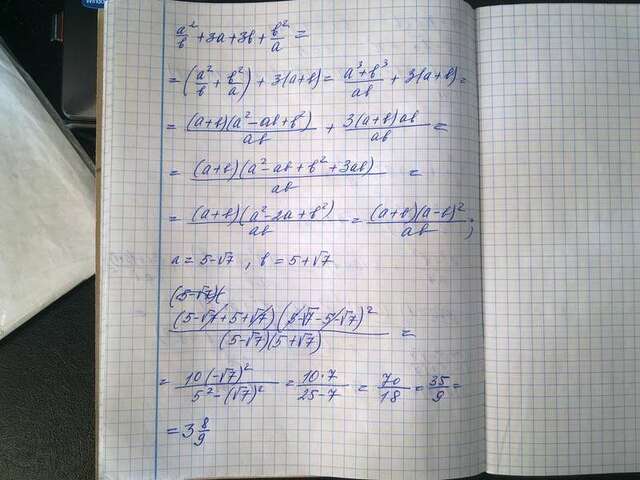 a²/b + 3a + 3b + b²/a =
= (a²/b + b²/a) + 3(a+b) = (a³+b³)/ab + 3(a+b) =
= (a+b)(a²-ab+b²)/ab + 3(a+b)ab/ab =
= (a+b)(a²-ab+b²+3ab)/ab =
= (a+b)(a²-2a+b²)/ab = (a+b)(a-b)²/ab ;
a = 5-√7 , b = 5+√7
(5-√7)(
(5-√7+5+√7)(5-√7-5-√7)²/(5-√7)(5+√7) =
= 10(-√7)²/5²-(√7)² = 10·7/25-7 = 70/18 = 35/9 =
= 3 8/9